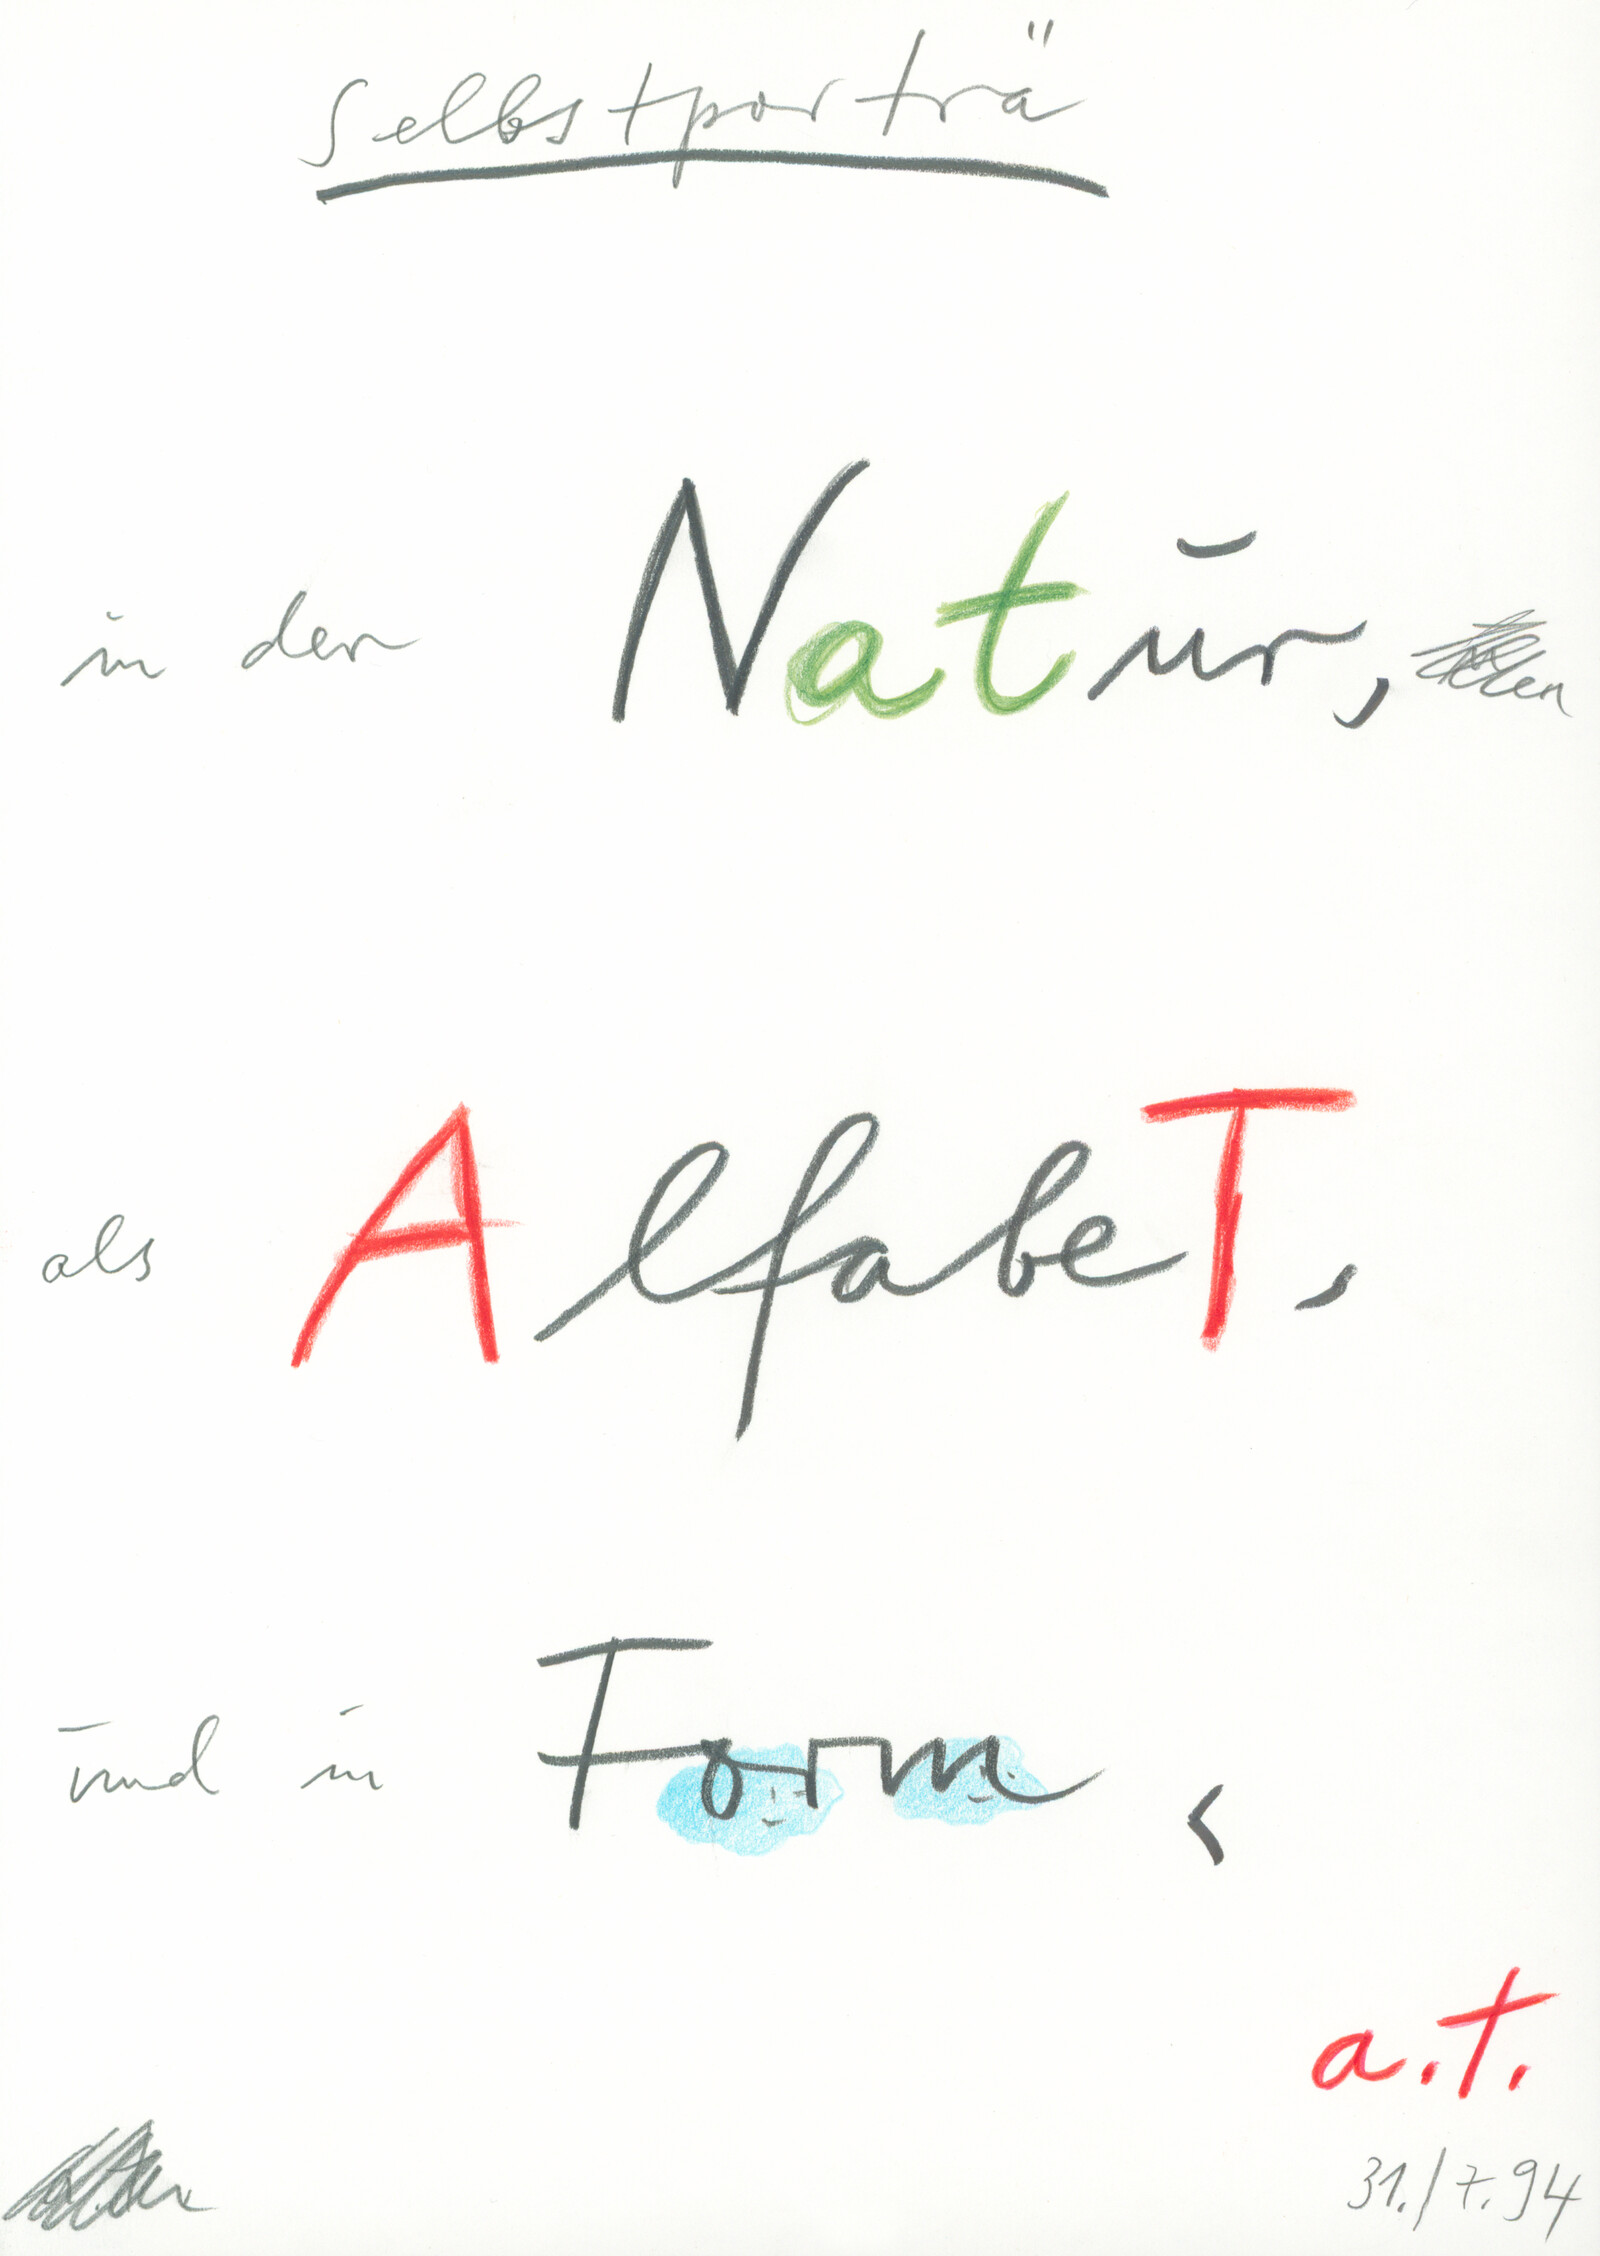 Selbstporträ
in der Natur,
als AlfabeT,
und in Form,
a.t.
31./7.94